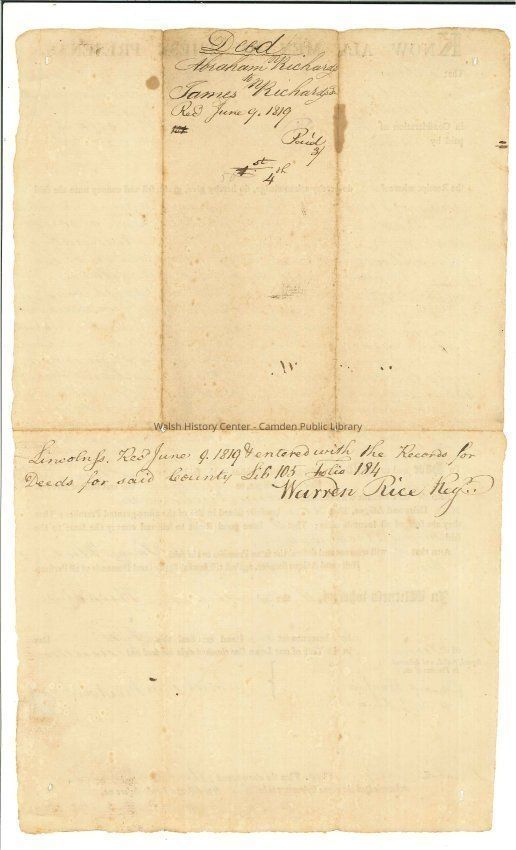 Deed
Abraham Richards
to
James Richards
Recd June 9. 1819
Paid
3/
st
4th
Walsh History Center - Camden Public Library
Lincoln ss. Recd June 9. 1819 & entered with the Records for
Deeds for said County Lib 105 folio 184
Warren Rice Regr.